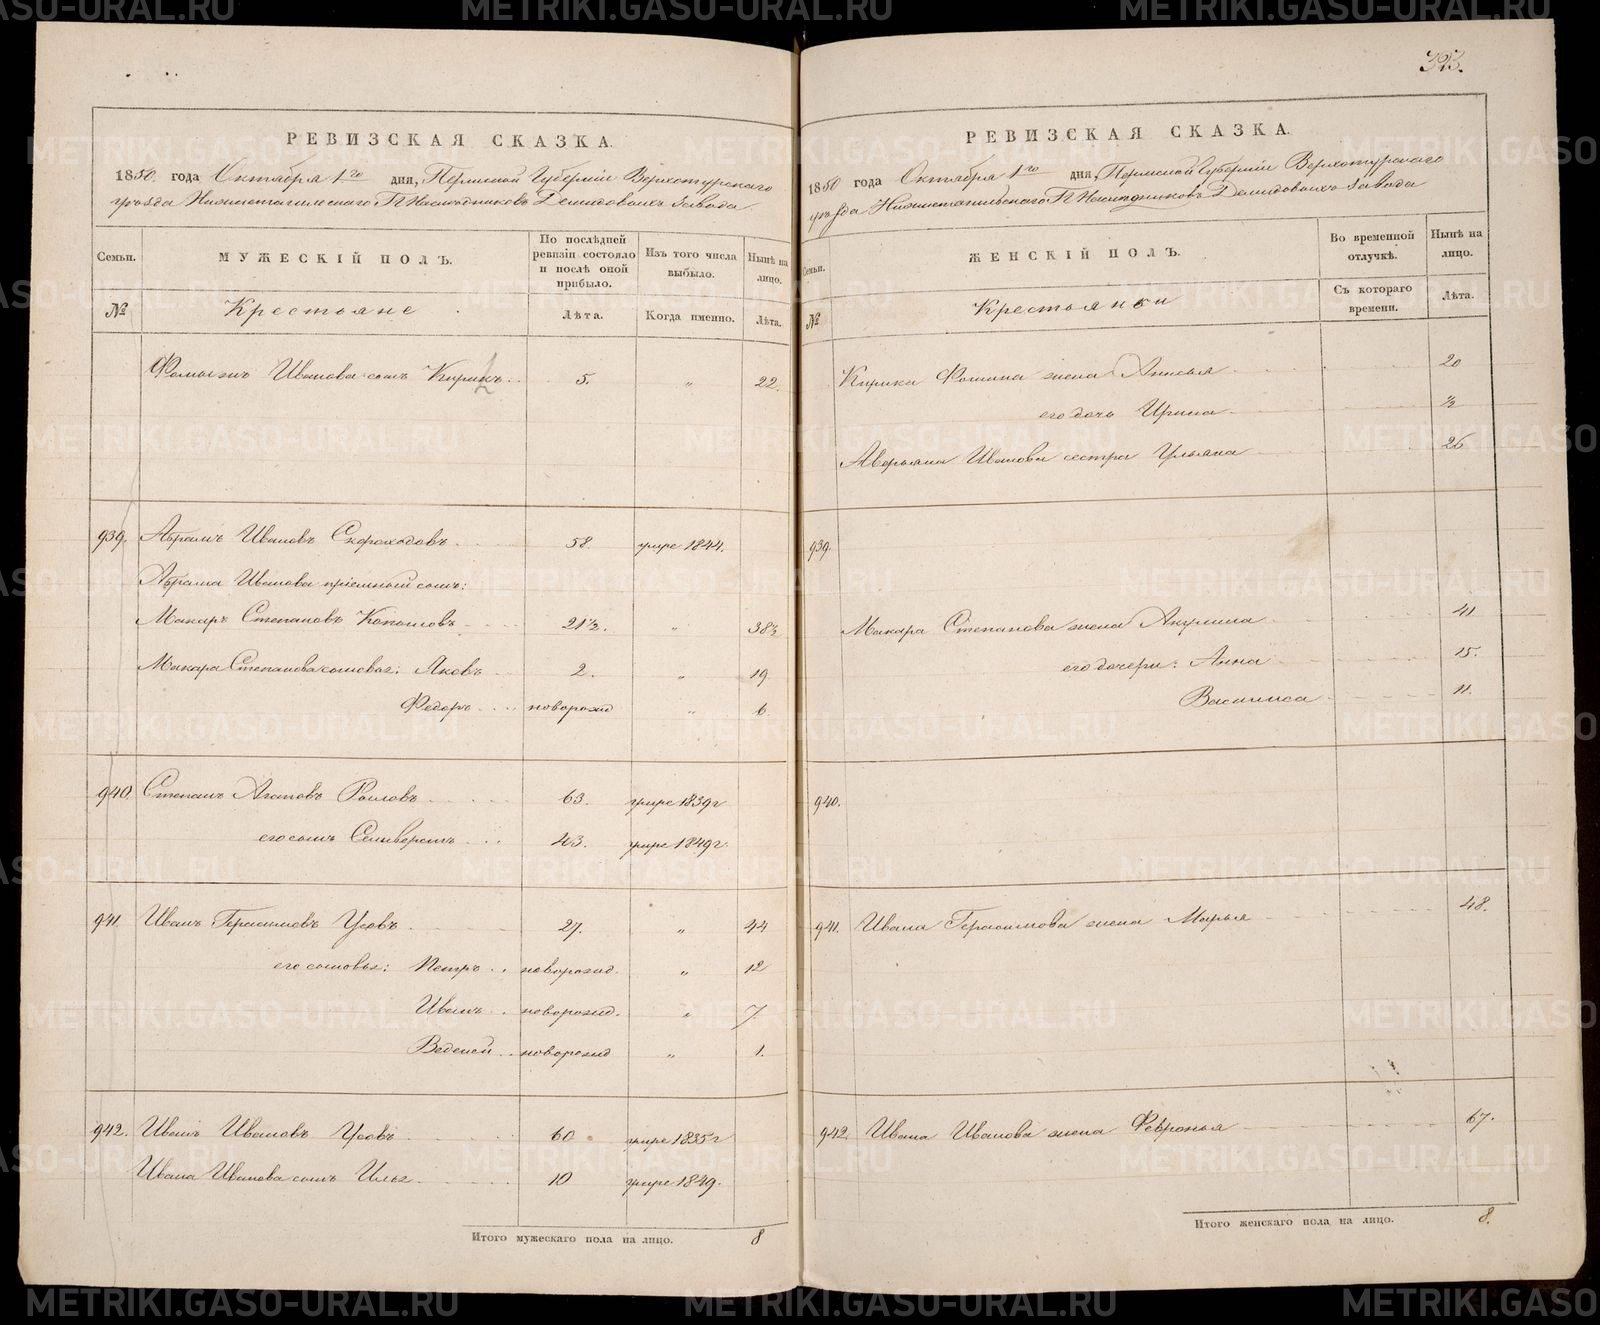 METRIKI.GASO-URAL.RU
393.
РЕВИЗСКАЯ СКАЗКА.
1850. года Октября 1го дня, Пермской Губерніи Верхотурскаго
уѣзда Нижнетагильскаго Гг. Наслѣдниковъ Демидовыхъ Завода
Семьи.
МУЖЕСКІЙ ПОЛЪ.
По послѣдней ревизіи состояло и послѣ оной прибыло.
Изъ того числа выбыло.
Нынѣ на лицо.
№
Крестьяне
Лѣта.
Когда именно.
Лѣта.
Иванова сынъ Кирикъ 5. " 22.
939. Абрамъ Ивановъ Скороходовъ 58. умре 1844.
Абрама Иванова пріемный сынъ:
Макаръ Степановъ Копыловъ 21½. " 38½
Макара Степанова сыновья: Яковъ 2. " 19
Федоръ новорожд " 6.
940. Степанъ Агаповъ 63. умре 1839г
его сынъ Селиверстъ 43. умре 1849г.
941. Иванъ Герасимовъ Усовъ 27. " 44
его сыновья: Петръ новорожд. " 12
Иванъ новорожд. " 7.
Веденей новорожд " 1.
942. Иванъ Ивановъ Усовъ 60 умре 1835г
Ивана Иванова сынъ Илья 10 умре 1849.
Итого мужескаго пола на лицо. 8
РЕВИЗСКАЯ СКАЗКА.
1850 года Октября 1го дня, Пермской Губерніи Верхотурскаго
уѣзда Нижнетагильскаго Гг. Наслѣдниковъ Демидовыхъ Завода
Семьи.
ЖЕНСКІЙ ПОЛЪ.
Во временной отлучкѣ.
Нынѣ на лицо.
№
Крестьянки
Съ котораго времени.
Лѣта.
Кирика Фомина жена Анисья 20
его дочь Ирина ½
Аверьяна Иванова сестра Ульяна 26
939.
Макара Степанова жена Акулина 41
его дочери: Анна 15.
Василиса 11.
940.
941. Ивана Герасимова жена Марья 48.
942. Ивана Иванова жена Февронья 67.
Итого женскаго пола на лицо. 8.